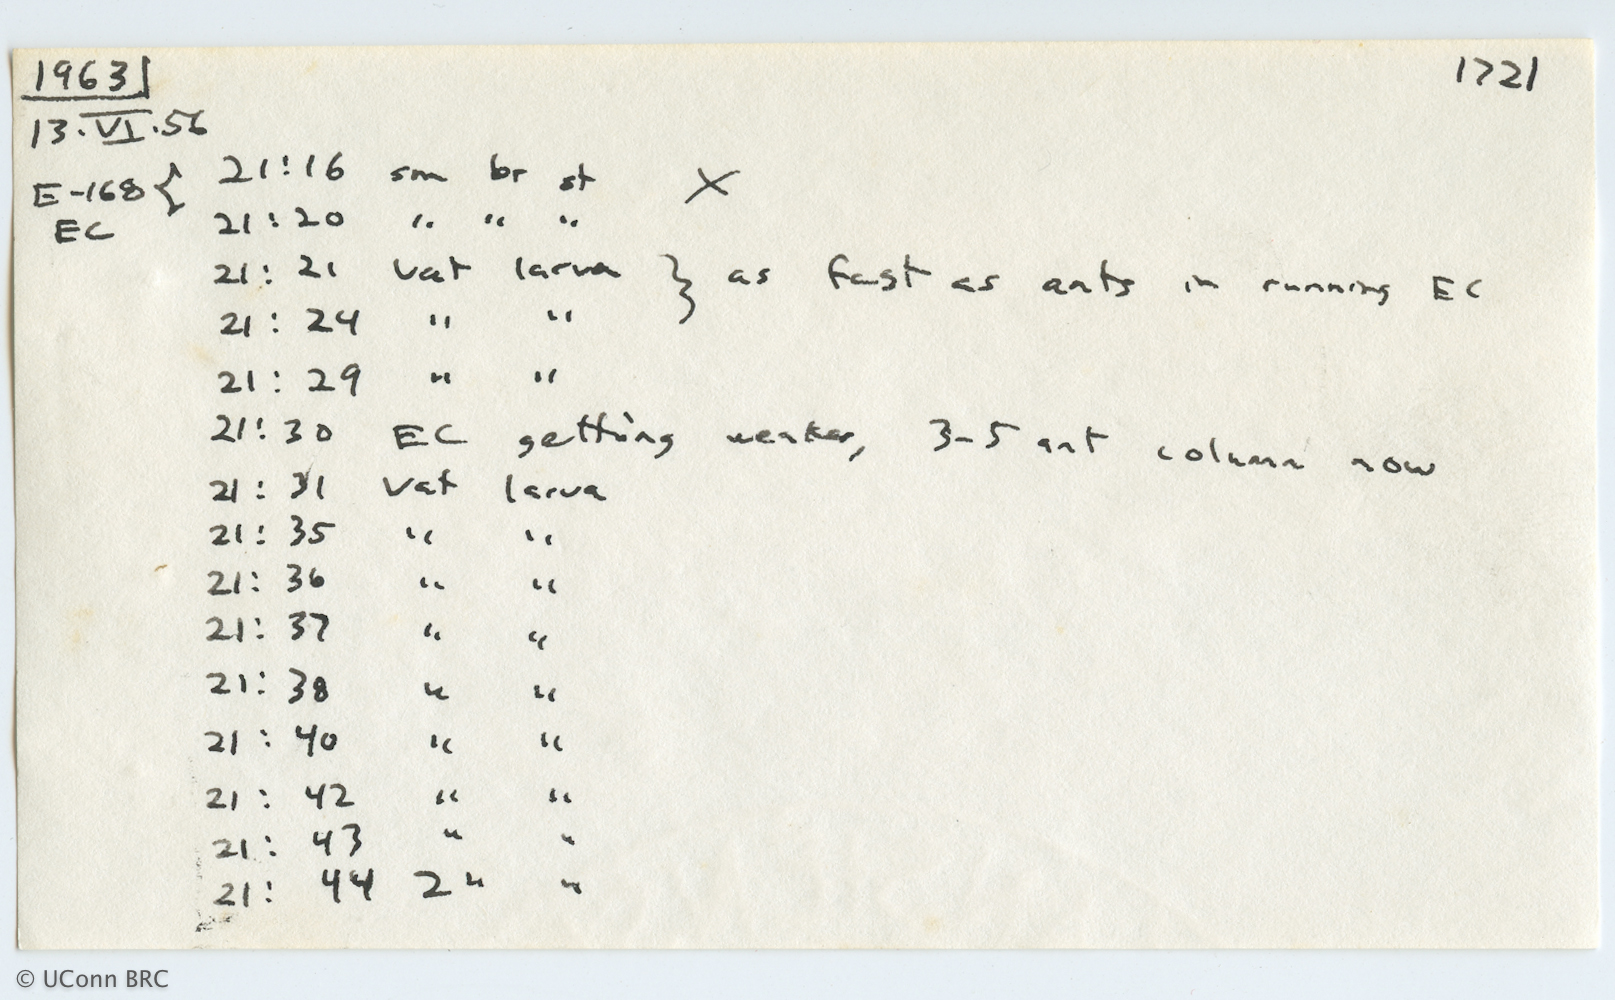 1963 1721
13.VI.56
E-168 { 21:16 sm br st X
EC 21:20 " " "
21:21 Vat larva } as fast as ants in running EC
21:24 " "
21:29 " "
21:30 EC getting weaker, 3-5 ant column now
21:31 Vat larva
21:35 " "
21:36 " "
21:37 " "
21:38 " "
21:40 " "
21:42 " "
21:43 " "
21:44 2 " "
© UConn BRC